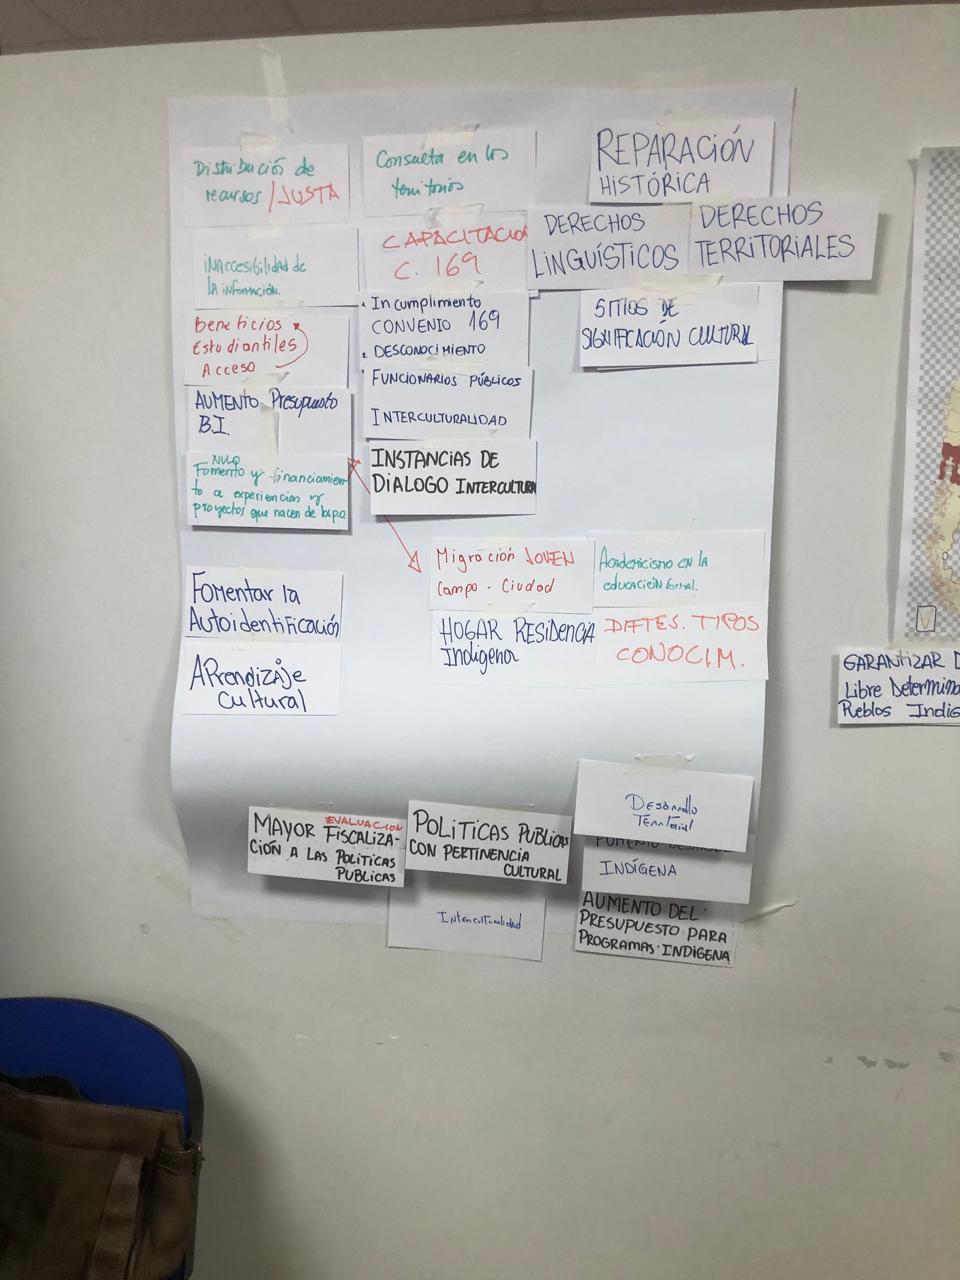 Distribución de
recursos / JUSTA
INACCESIBILIDAD de
LA INFORMACIÓN.
Beneficios
Estudiantiles
Acceso
AUMENTO Presupuesto
B.I.
NULO
Fomento y financiamien
to a experiencias y
proyectos que nacen de
Fomentar la
Autoidentificación
Aprendizaje
Cultural
Consulta en los
territorios
CAPACITACION
C. 169
. Incumplimiento
CONVENIO 169
. DESCONOCIMIENTO
FUNCIONARIOS PÚBLICOS
INTERCULTURALIDAD
INSTANCIAS DE
DIALOGO INTERCULTURAL
REPARACIÓN
HISTÓRICA
DERECHOS
LINGUÍSTICOS
DERECHOS
TERRITORIALES
SITIOS DE
SIGNIFICACIÓN CULTURAL
Migración JOVEN
Campo - Ciudad
HOGAR RESIDENCIA
Indígena
Academicismo EN LA
educación formal.
DIFTES. TIPOS
CONOCIM.
EVALUACION
MAYOR FISCALIZA-
CIÓN A LAS POLITICAS
PUBLICAS
POLITICAS PUBLICAS
CON PERTINENCIA
CULTURAL
Interculturalidad
Desarrollo
Territorial
INDÍGENA
AUMENTO DEL
PRESUPUESTO PARA
PROGRAMAS INDIGENA
GARANTIZAR D
Libre Determina
Pueblos Indig